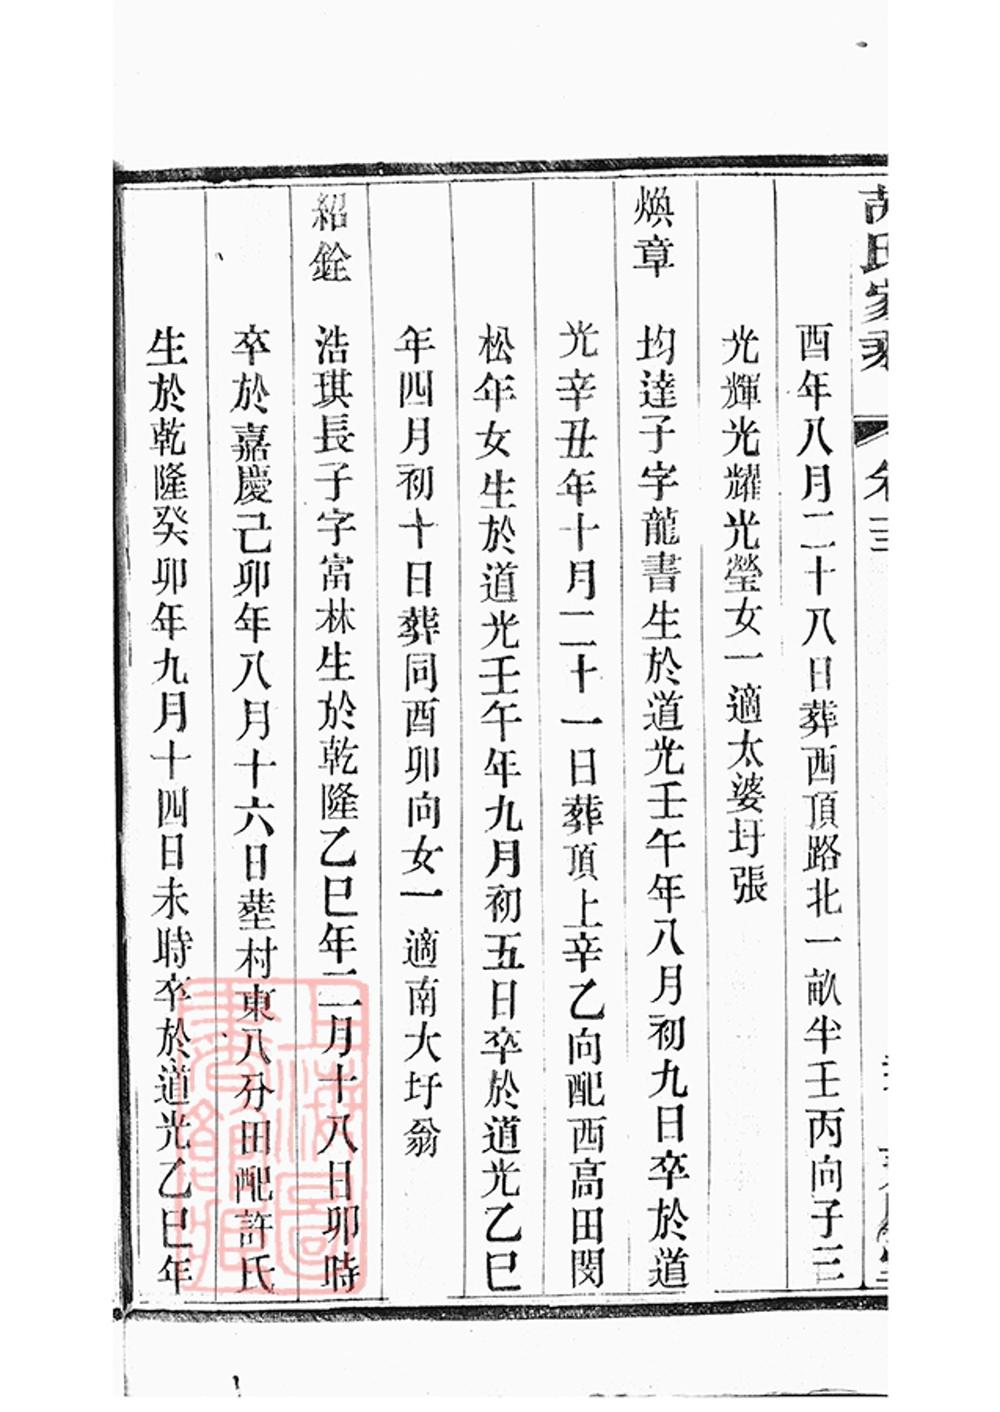 胡氏家乘
卷三
酉年八月二十八日葬西頂路北一畝半壬丙向子三
光輝光耀光瑩女一適太婆圩張
煥章 均達子字龍書生於道光壬午年八月初九日卒於道
光辛丑年十月二十一日葬頂上辛乙向配西高田閔
松年女生於道光壬午年九月初五日卒於道光乙巳
年四月初十日葬同酉卯向女一適南大圩翁
紹銓 浩琪長子字富林生於乾隆乙巳年二月十八日卯時
卒於嘉慶己卯年八月十六日塟村東八分田配許氏
生於乾隆癸卯年九月十四日未時卒於道光乙巳年
上海圖書館藏